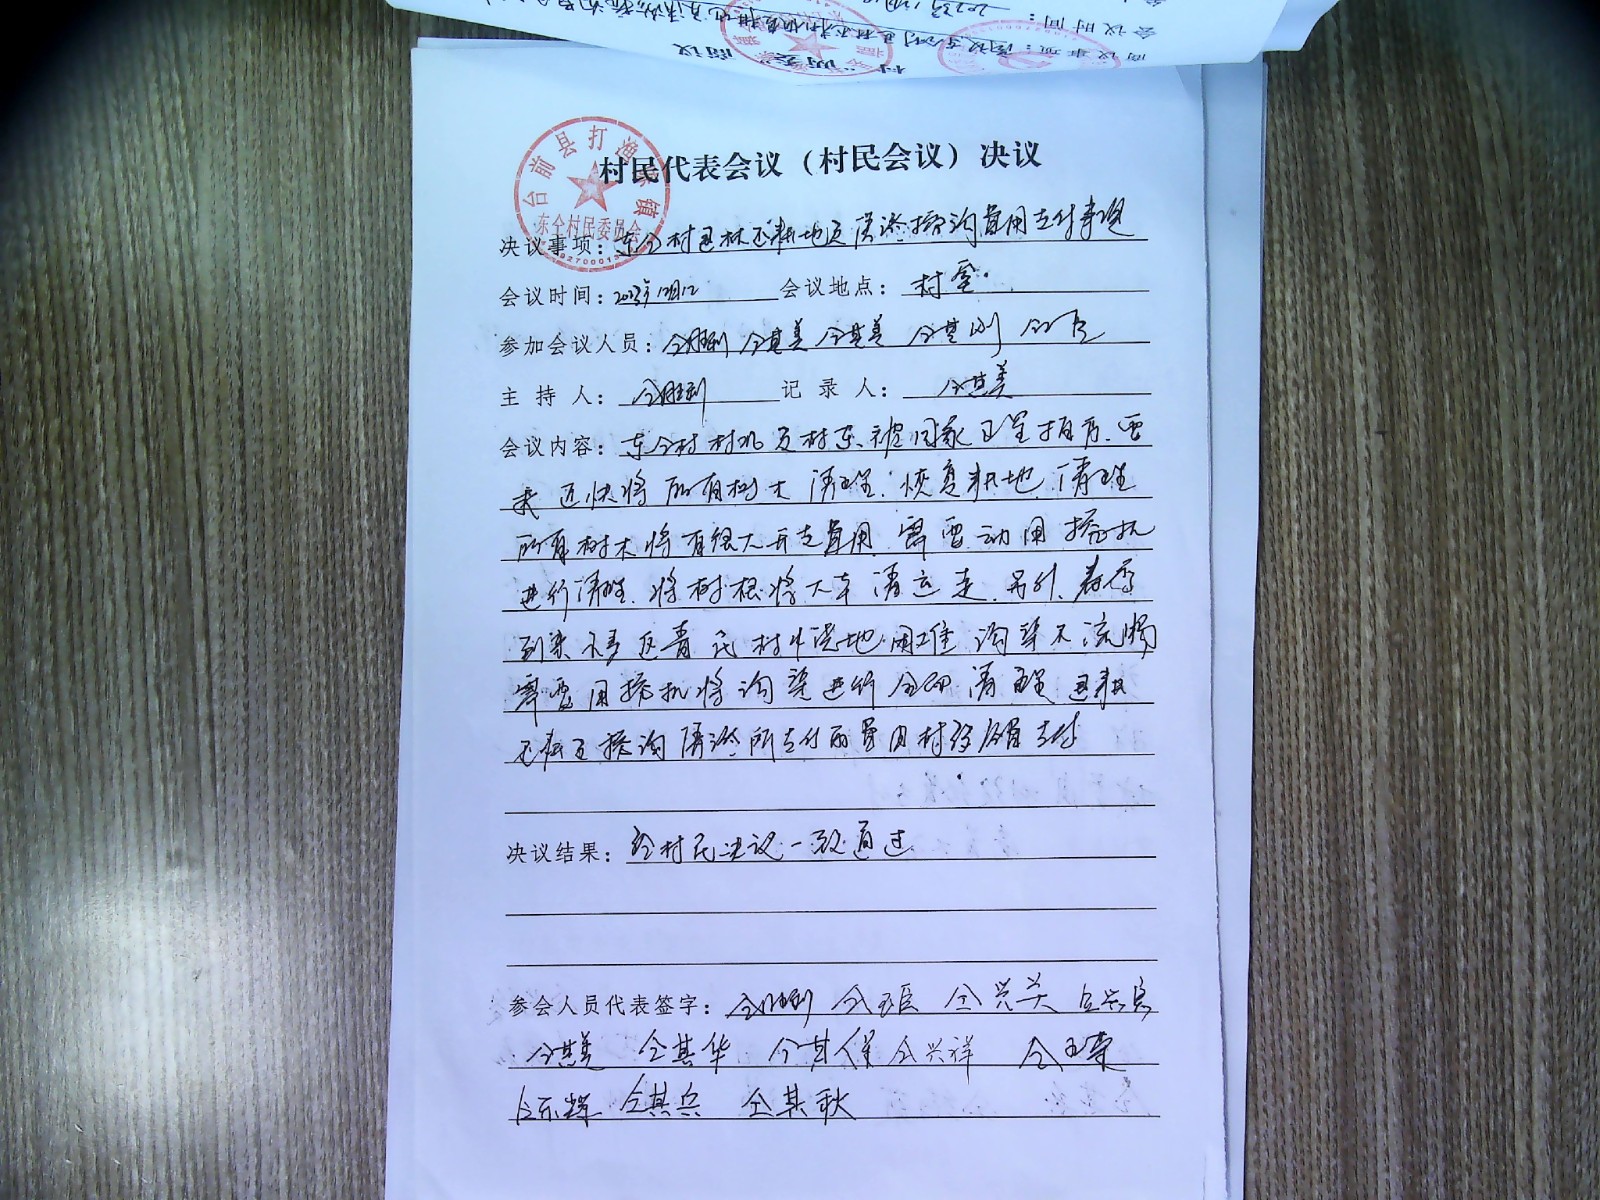 村民代表会议（村民会议）决议
台前县打渔陈镇
东仝村民委员会
决议事项：东仝村退林还耕地及清淤挖沟费用支付事项
会议时间：2023年12月12 会议地点：村室
参加会议人员：仝胜利 仝其美 仝其美 仝其刚
主持人：仝胜利 记录人：仝其美
会议内容：东仝村村北及村东、被国家卫星拍房、需
要 尽快将所有树木清理、恢复耕地、清理
所有树木将有很大开支费用、需要动用挖机
进行清理、将树根将大车清运走、另外、春季
到来 返青 村 浇地困难 沟渠不流畅
需要用挖机将沟渠进行全面清理 退林
还耕及挖沟清淤所支付的费用村 支付
决议结果：经村民决议一致通过
参会人员代表签字：仝胜利 仝玉臣 仝兴关
仝其美 仝其华 仝其保 仝兴祥 仝玉
仝东辉 仝其兵 仝其秋